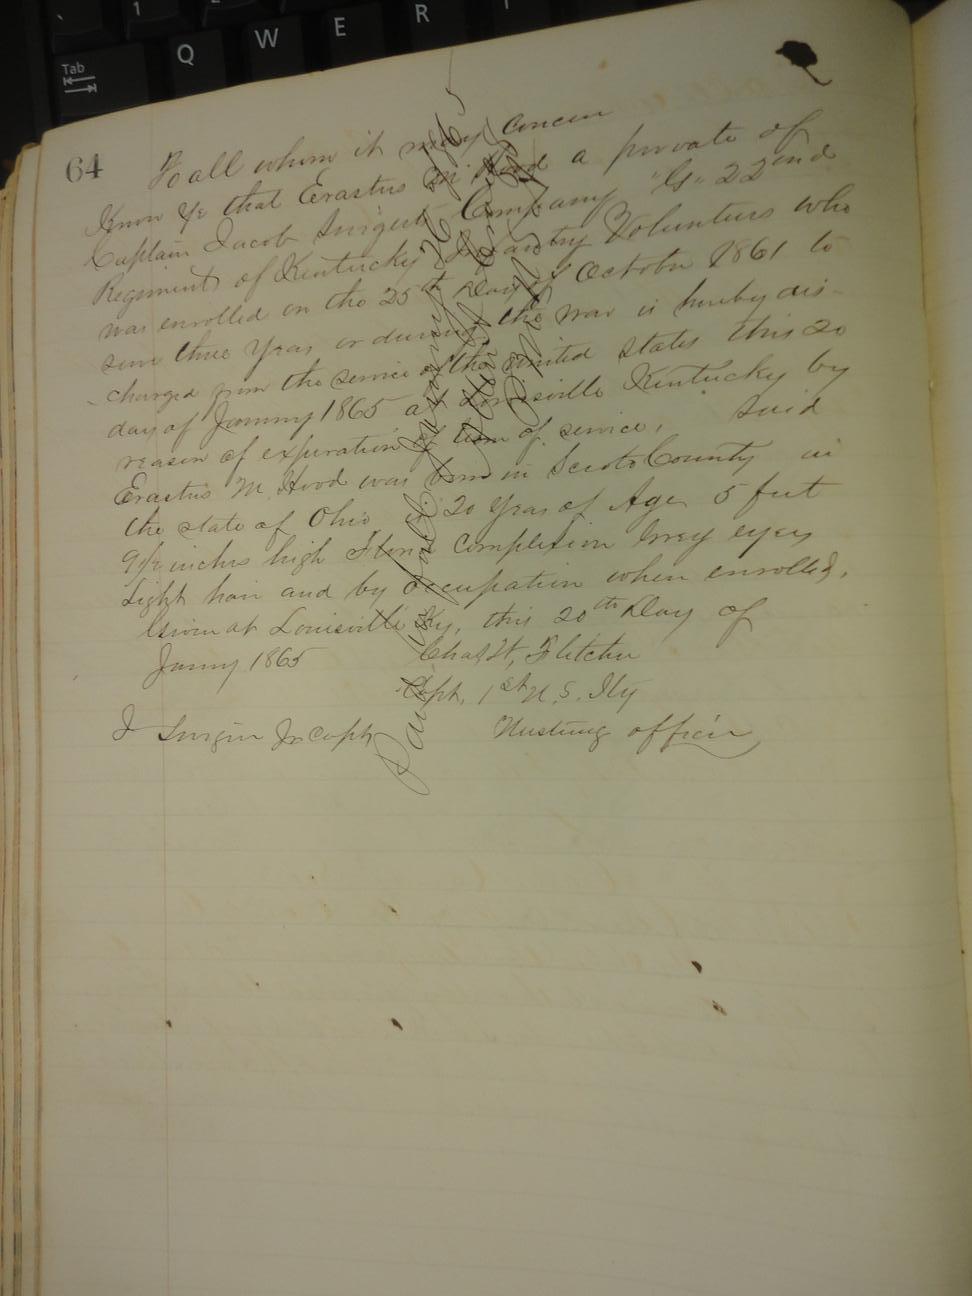 64
To all whom it may concern
Know Ye that Erastus M Hood a private of
Captain Jacob Company "G" 22nd
Regiment of Kentucky Infantry Volunteers who
was enrolled on the 25th Day of October 1861 to
serve three Years or during the war is hereby dis-
charged from the service of the United States this 20
day of January 1865 at Louisville Kentucky by
reason of expiration of term of service, Said
Erastus M. Hood was born in Scioto County in
the state of Ohio is 20 Years of Age 5 feet
9½ inches high complexion Grey eyes
Light hair and by occupation when enrolled,
Given at Louisville Ky, this 20th Day of
Janny 1865
Chas H, Fletcher
Capt, 1st U, S. Ify
J Jr Capt
Mustering officer
Paid in full January 26 1865